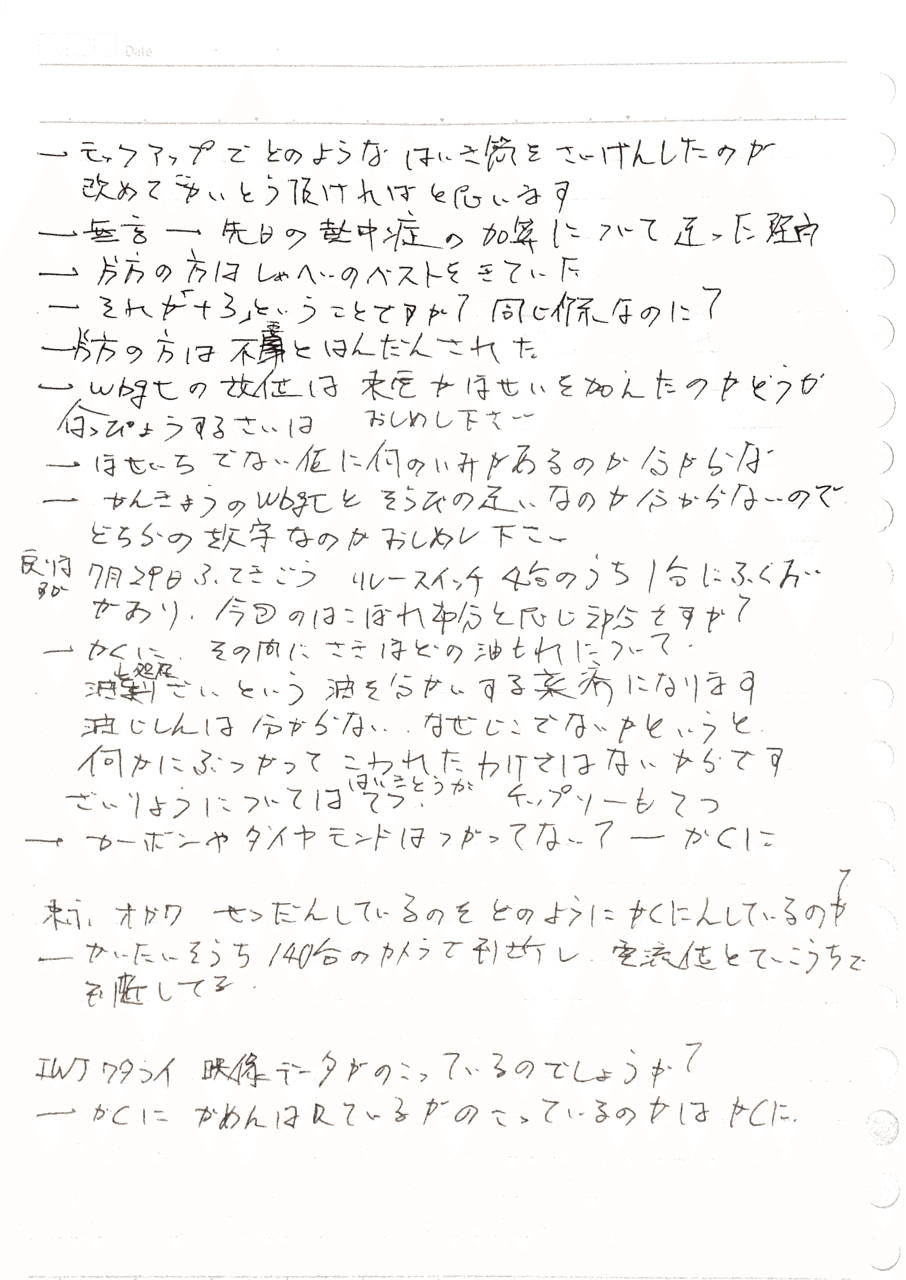 Date
― モックアップでどのようなはいき筒をさいげんしたのか
改めてかいとう頂ければと思います
― 無言 ― 先日の熱中症の加算について 違った 理由
― 片方の方はしゃへいのベストをきていた
― それが「+3」ということですか? 同じ係なのに?
― 片方の方は不要とはんだんされた
― wbgtの数値は 東電がほせいを加えたのかどうか
はっぴょうするさいは おしめし下さい
― ほせいちでない値に何のいみがあるのか分からな
― かんきょうのwbgtと そうびの違いなのか分からないので
どちらの数字なのかおしめし下さい
7月29日 ふてきごう リレースイッチ 4台のうち1台にふぐあい
があり、今回のはこぼれ部分と同じ部分ですか?
― かくに、その間にさきほどの油もれについて、
油処理ざいという 油を分かいする薬 になります
油じしんは分からない、なぜじこでないかというと、
何かにぶつかってこわれたわけではないからです
ざいりょうについては はいきとうが てつ、 チップソーもてつ
― カーボンやダイヤモンドはつかってない? ― かくに
オガワ せつだんしているのをどのようにかくにんしているのか?
― かいたいそうち 140台のカメラで判断し、電流値とていこうちで
判断してる、
IWJ ワタライ 映像データがのこっているのでしょうか?
― かくに がめんは見ているがのこっているのかはかくに、